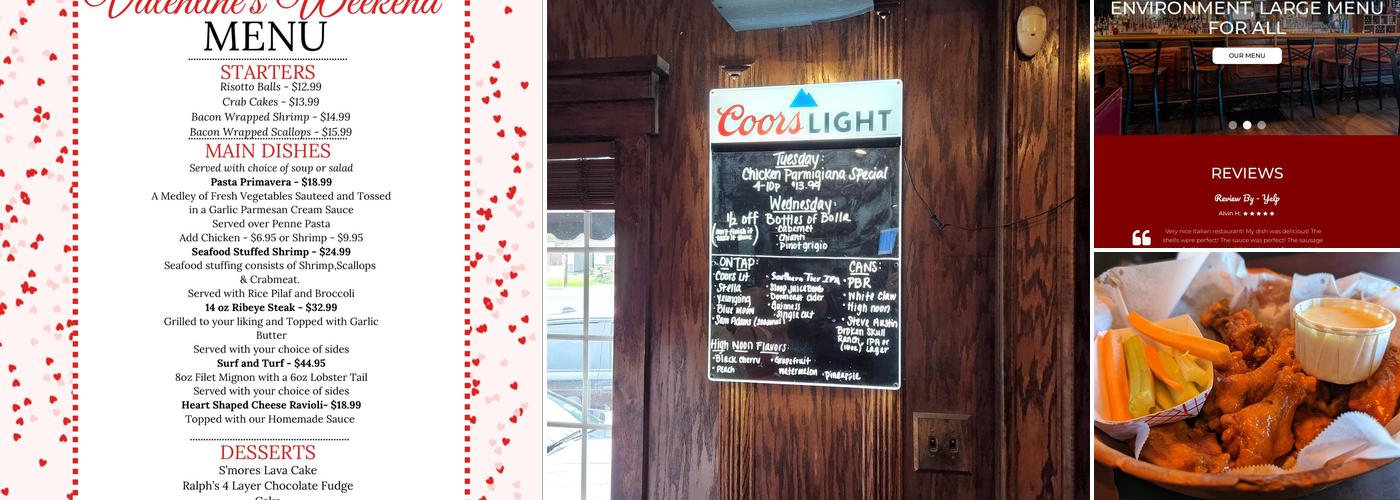 Valentine's Weekend
MENU
STARTERS
Risotto Balls - $12.99
Crab Cakes - $13.99
Bacon Wrapped Shrimp - $14.99
Bacon Wrapped Scallops - $15.99
MAIN DISHES
Served with choice of soup or salad
Pasta Primavera - $18.99
A Medley of Fresh Vegetables Sauteed and Tossed
in a Garlic Parmesan Cream Sauce
Served over Penne Pasta
Add Chicken - $6.95 or Shrimp - $9.95
Seafood Stuffed Shrimp - $24.99
Seafood stuffing consists of Shrimp,Scallops
& Crabmeat.
Served with Rice Pilaf and Broccoli
14 oz Ribeye Steak - $32.99
Grilled to your liking and Topped with Garlic
Butter
Served with your choice of sides
Surf and Turf - $44.95
8oz Filet Mignon with a 6oz Lobster Tail
Served with your choice of sides
Heart Shaped Cheese Ravioli- $18.99
Topped with our Homemade Sauce
DESSERTS
S'mores Lava Cake
Ralph's 4 Layer Chocolate Fudge
Cake
Coors LIGHT
Tuesday:
Chicken Parmigiana Special
4-10p $13.99
Wednesday:
1/2 off Bottles of Bolla
Cabernet
Chianti
Pinotgrigio
ON TAP:
Coors Lt
Stella
Yuengling
Blue moon
Sam Adams (seasonal)
Southern Tier IPA
Sloop Juice Bomb
Downeast Cider
Guinness
Single cut
CANS:
PBR
White Claw
High noon
Steve Austin
Broken Skull
Ranch, IPA or
Lager
High Noon Flavors:
Black cherry
Peach
Grapefruit
watermelon
Pineapple
ENVIRONMENT, LARGE MENU
FOR ALL
OUR MENU
REVIEWS
Review By - Yelp
Alvin H: ★★★★★
Very nice Italian restaurant! My dish was delicious! The
shells were perfect! The sauce was perfect! The sausage